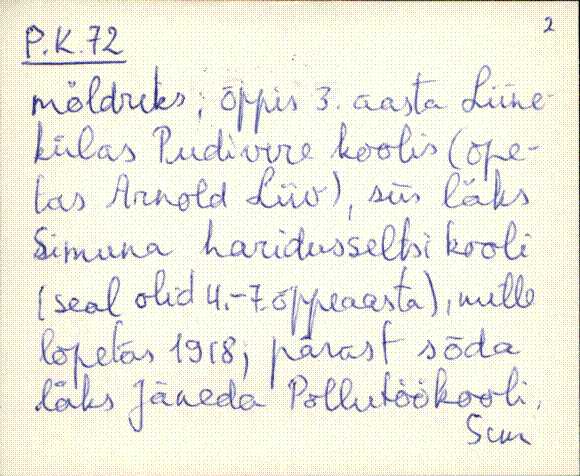 2
P.K.72
möldriks; õppis 3. aasta Liine-
külas Pudivere koolis (õpe-
tas Arnold Liiv), siis läks
Simuna haridusseltsi kooli
(seal olid 4.-7. õppeaasta), mille
lõpetas 1918; pärast sõda
läks Jäneda Põllutöökooli.
Sim